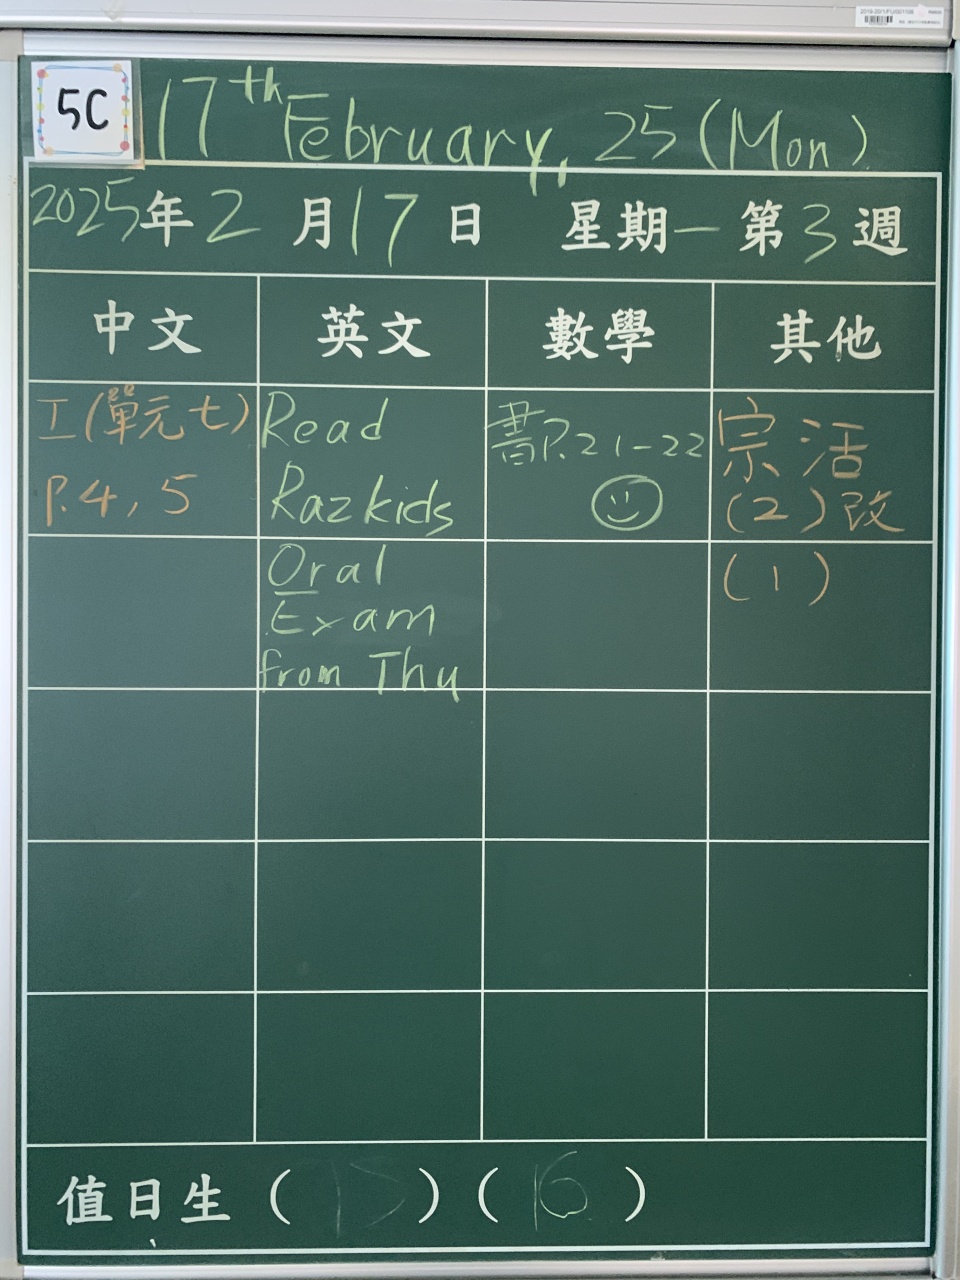 5C
17th February, 25 (Mon)
2025年2月17日 星期一 第3週
中文 英文 數學 其他
工(單元七)
P.4, 5
Read
Razkids
書P.21-22
宗活
(2)改
Oral
Exam
from Thu
(1)
值日生 ( 17 ) ( 16 )